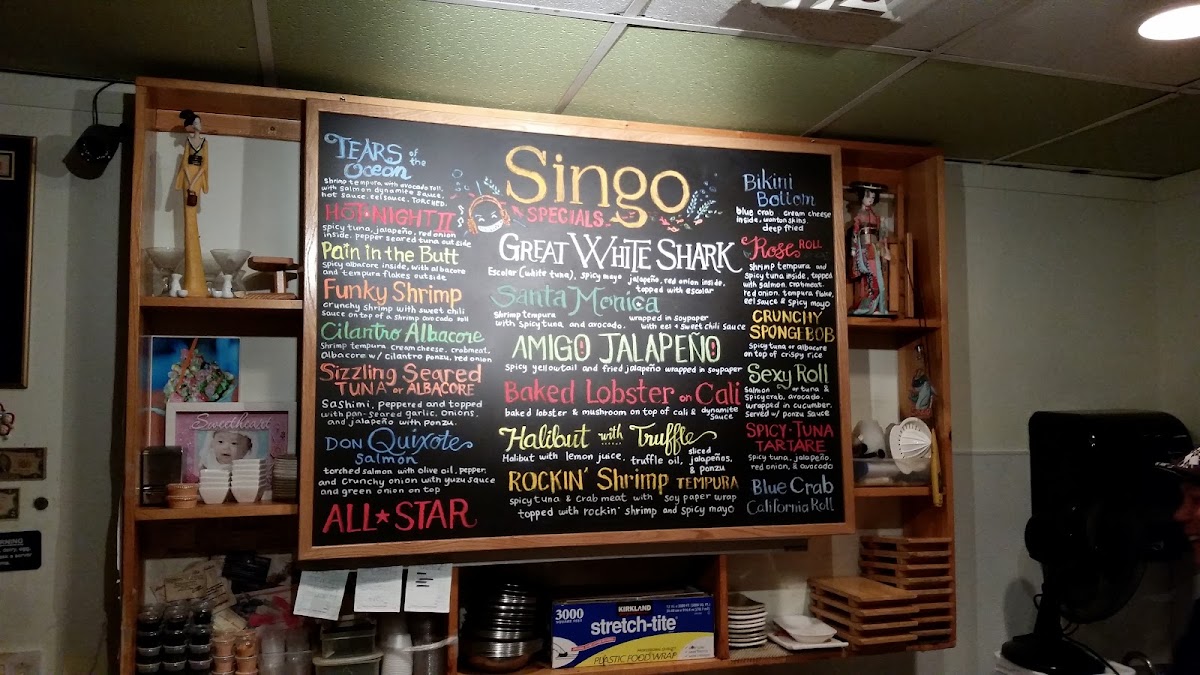 Singo
SPECIALS
TEARS of the
Ocean
Shrimp tempura with avocado roll,
with salmon dynamite sauce,
hot sauce. eel sauce. TORCHED.
HOT•NIGHT II
spicy tuna, jalapeño, red onion
inside. pepper seared tuna outside
Pain in the Butt
spicy albacore inside, with albacore
and tempura flakes outside
Funky Shrimp
crunchy shrimp with sweet chili
sauce on top of a shrimp avocado roll
Cilantro Albacore
Shrimp tempura creamcheese, crabmeat,
Albacore w/ cilantro ponzu, red onion
Sizzling Seared
TUNA or ALBACORE
Sashimi, peppered and topped
with pan-seared garlic, onions,
and jalapeño with ponzu.
DON Quixote
salmon
torched salmon with olive oil, pepper,
and crunchy onion with yuzu sauce
and green onion on top
ALL★STAR
GREAT WHITE SHARK
Escolar (white tuna), spicy mayo jalapeño, red onion inside,
topped with escolar
Santa Monica
Shrimp tempura wrapped in soypaper
with spicy tuna and avocado. with eel & sweet chili sauce
AMIGO JALAPEÑO
spicy yellowtail and fried jalapeño wrapped in soypaper
Baked Lobster on Cali
baked lobster & mushroom on top of cali & dynamite
sauce
Halibut with Truffle
Halibut with lemon juice, truffle oil, sliced
jalapeños,
& ponzu
ROCKIN' Shrimp TEMPURA
spicy tuna & crab meat with soy paper wrap
topped with rockin' shrimp and spicy mayo
Bikini
Bottom
blue crab cream cheese
inside, wonton skins,
deep fried
Rose ROLL
shrimp tempura and
spicy tuna inside, topped
with salmon, crabmeat,
red onion, tempura flake,
eel sauce & spicy mayo
CRUNCHY
SPONGEBOB
spicy tuna or albacore
on top of crispy rice
Sexy Roll
Salmon or tuna &
spicy crab, avocado,
wrapped in cucumber.
Served w/ ponzu sauce
SPICY•TUNA
TARTARE
Spicy tuna, jalapeño,
red onion, & avocado
Blue Crab
California Roll
Sweetheart
3000
SQUARE FEET
KIRKLAND
stretch-tite
PLASTIC FOOD WRAP